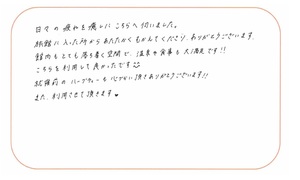 日々の疲れを癒しにこちらへ伺いました。
旅館に入った所からあたたかくもかんげいてくださり、ありがとうございます。
館内もとても落ち着く空間で、温泉や食事も大満足です!!
こちらを利用して良かったです
就寝前のハーブティーも心づかい頂きありがとうございます!!
また、利用させて頂きます♥